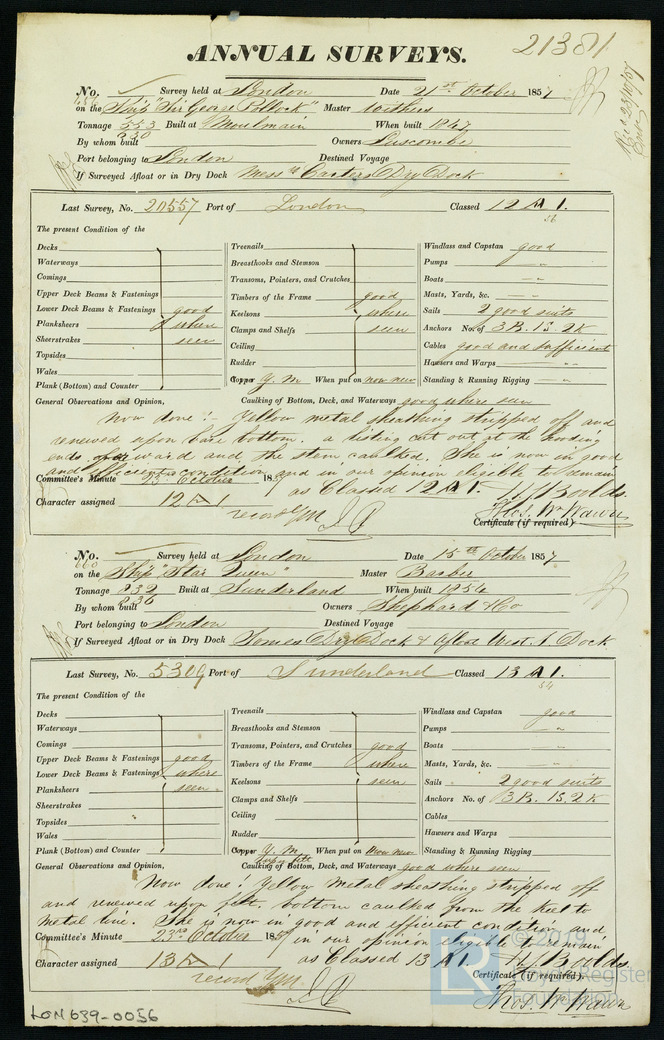 21381
ANNUAL SURVEYS.
Recd 23/10/57
No. Survey held at London Date 21st October 1857
on the Ship "Sir George Pollock" Master Withers
Tonnage 553 Built at Moulmain When built 1847
630
By whom built Owners Luscombe
Port belonging to London Destined Voyage
If Surveyed Afloat or in Dry Dock Messrs Carters Dry Dock
Last Survey, No. 20557 Port of London Classed 12 A 1.
56
The present Condition of the
Decks Treenails Windlass and Capstan good
Waterways Breasthooks and Stemson Pumps "
Comings Transoms, Pointers, and Crutches Boats "
Upper Deck Beams & Fastenings Timbers of the Frame good Masts, Yards, &c. "
Lower Deck Beams & Fastenings good Keelsons where Sails 2 good suits
Planksheers where Clamps and Shelfs seen Anchors No. of 3B. 1S. 2K
Sheerstrakes seen Ceiling Cables good and sufficient
Topsides Rudder Hawsers and Warps "
Wales Copper Y. M. When put on now new Standing & Running Rigging "
Plank (Bottom) and Counter
General Observations and Opinion, Caulking of Bottom, Deck, and Waterways good where seen
Now done:- Yellow metal sheathing stripped off and
renewed upon bare bottom. a listing cut out at the hooding
ends forward and the stem caulked. She is now in good
and efficient condition and in our opinion eligible to remain
Committee's Minute 23 October 1857 as Classed 12 A 1.
Character assigned 12 A 1
record YM
Thos. W. Wawn
Certificate (if required)
No. Survey held at London Date 15th October 1857
660
on the Ship "Star Queen" Master Barber
Tonnage 832 Built at Sunderland When built 1854
836
By whom built Owners Shephard & Co
Port belonging to London Destined Voyage
If Surveyed Afloat or in Dry Dock Somes Dry Dock & afloat West. I. Dock
Last Survey, No. 5309 Port of Sunderland Classed 13 A 1.
54
The present Condition of the
Decks Treenails Windlass and Capstan good
Waterways Breasthooks and Stemson Pumps "
Comings Transoms, Pointers, and Crutches good Boats "
Upper Deck Beams & Fastenings good Timbers of the Frame where Masts, Yards, &c. "
Lower Deck Beams & Fastenings where Keelsons seen Sails 2 good suits
Planksheers seen Clamps and Shelfs Anchors No. of 3B. 1S. 2K
Sheerstrakes Ceiling Cables
Topsides Rudder Hawsers and Warps
Wales Copper Y. M. When put on Now new Standing & Running Rigging
upon felt
Plank (Bottom) and Counter
General Observations and Opinion, Caulking of Bottom, Deck, and Waterways good where seen
Now done: Yellow Metal sheathing stripped off
and renewed upon felt. bottom caulked from the keel to
metal line. She is now in good and efficient condition and
Committee's Minute 23rd October 1857 in our opinion eligible to remain
Character assigned 13 A 1 as Classed 13 A 1.
record YM
Certificate (if required)
Thos. W. Wawn
LON639-0056
© 2019
LR
Lloyd's Register
Foundation